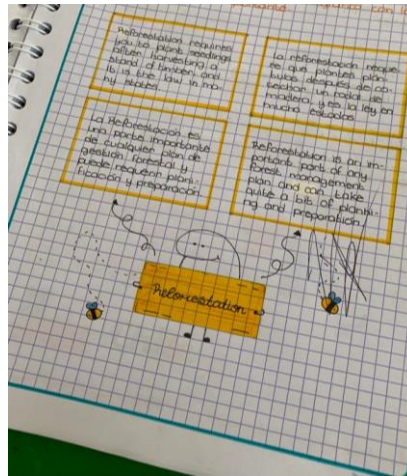 Reforestation requires
you to plant seedlings
after harvesting a
stand of timber, and
it is the law in ma-
ny states.
La reforestación requie-
re que plantes plán-
tulas después de co-
sechar un rodal de
madera, y es la ley en
muchos estados.
La Reforestación es
una parte importante
de cualquier plan de
gestión forestal y
puede requerir plani-
ficación y preparación.
Reforestation is an im-
portant part of any
forest management
plan and can take
quite a bit of planni-
ng and preparation.
Reforestation